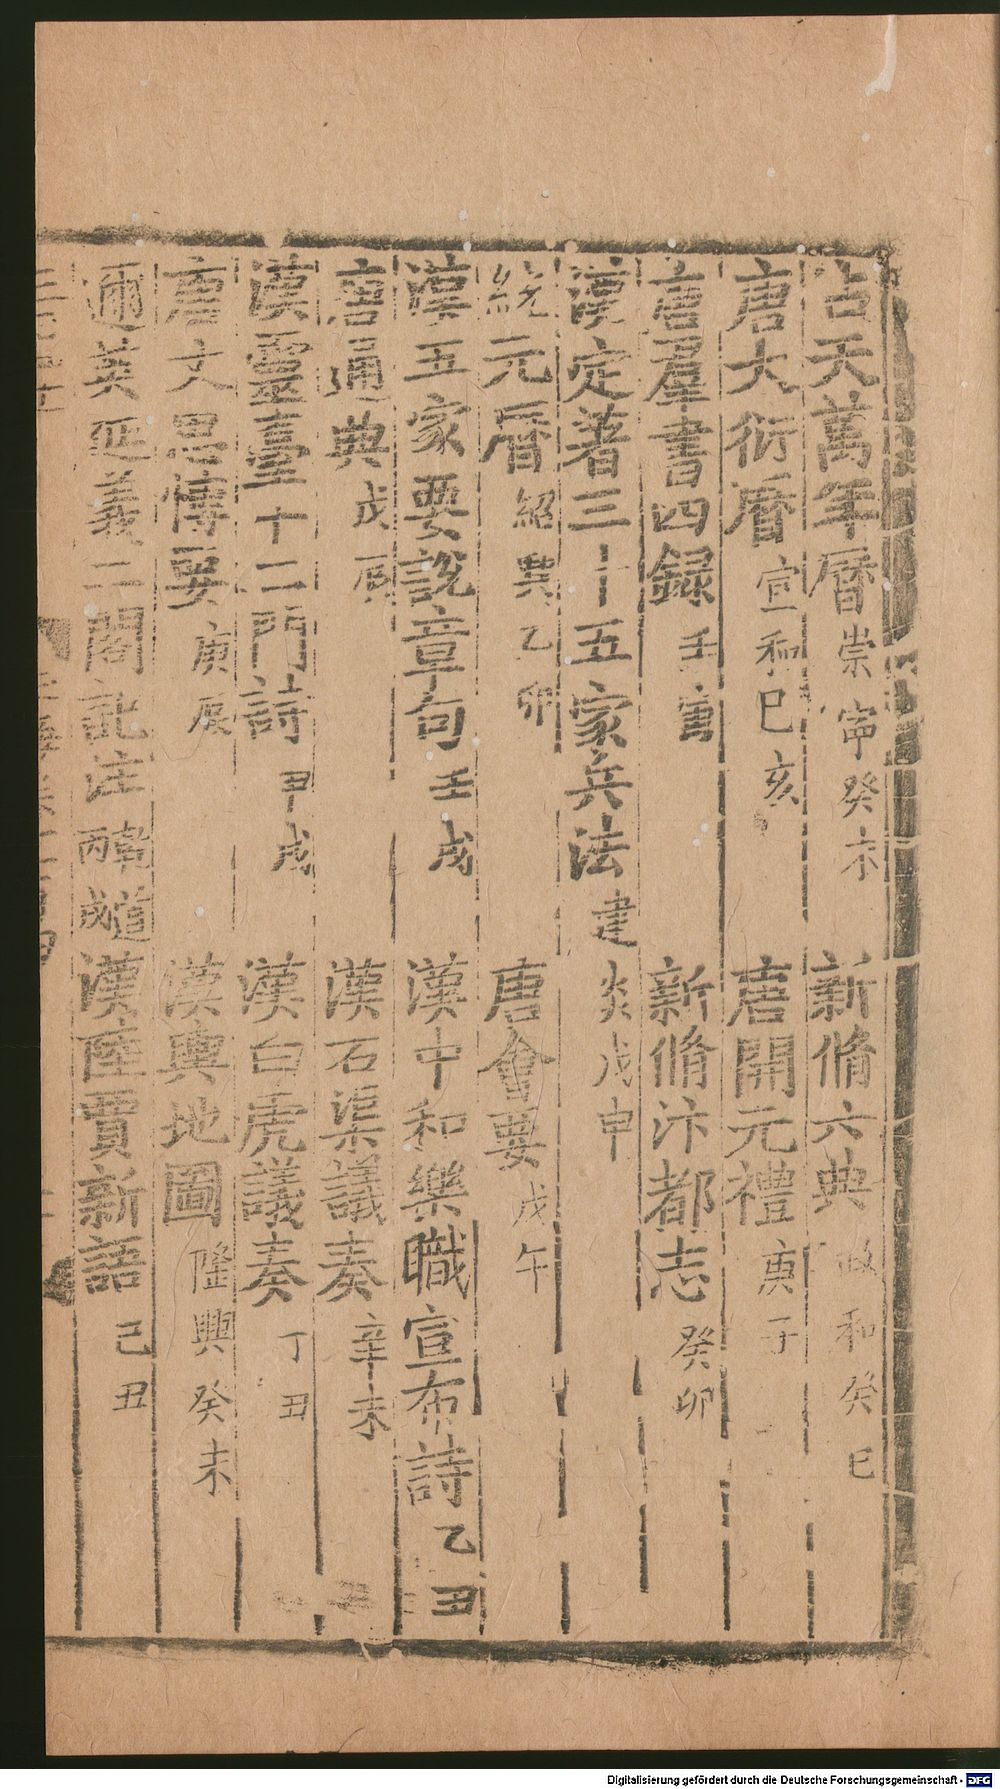 占天萬年曆崇寧癸未 新脩六典政和癸巳
唐大衍曆宣和己亥 唐開元禮庚子
唐羣書四録壬寅 新脩汴都志癸卯
漢定著三十五家兵法建炎戊申
統元曆紹興乙卯 唐會要戊午
漢五家要說章句壬戌 漢中和樂職宣布詩乙丑
唐通典戊辰 漢石渠議奏辛未
漢靈臺十二門詩甲戌 漢白虎議奏丁丑
唐文思博要庚辰 漢輿地圖隆興癸未
邇英延義二閣記注乾道丙戌 漢陸賈新語己丑
Digitalisierung gefördert durch die Deutsche Forschungsgemeinschaft - DFG